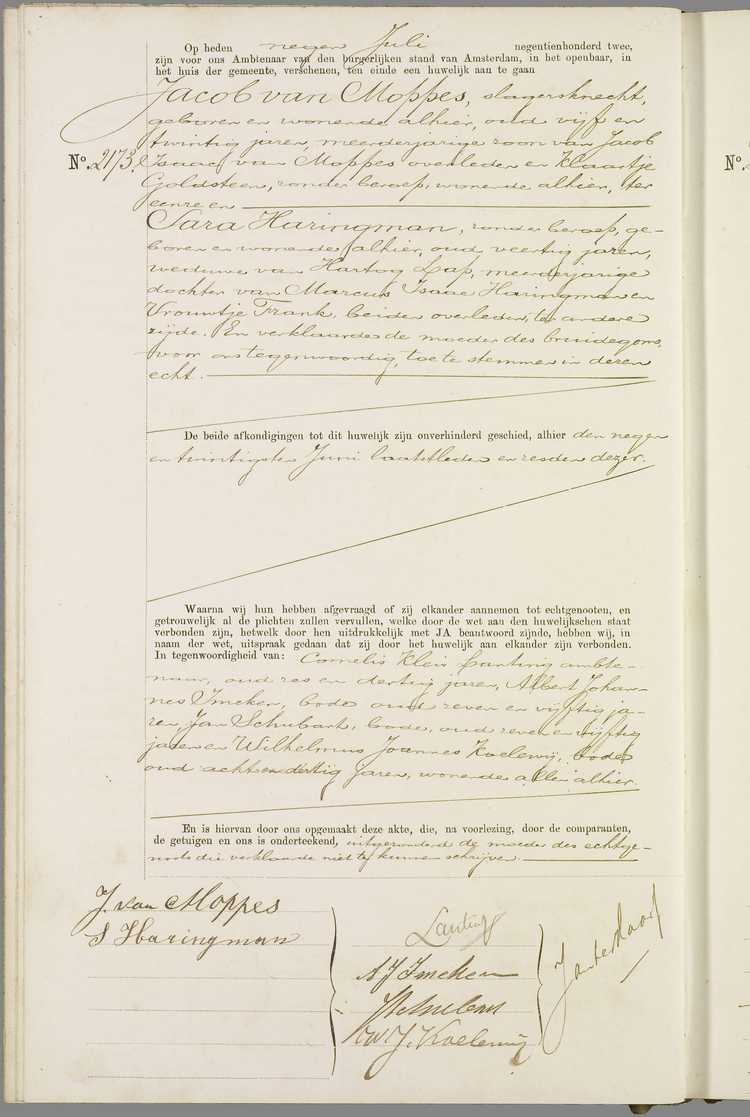 Op heden negen Juli negentienhonderd twee,
zijn voor ons Ambtenaar van den burgerlijken stand van Amsterdam, in het openbaar, in
het huis der gemeente, verschenen, ten einde een huwelijk aan te gaan
Jacob van Moppes, slagersknecht,
geboren en wonende alhier, oud vijf en
twintig jaren, meerderjarige zoon van Jacob
No. 2173. Isaac van Moppes overleden en Klaartje
Goldsteen, zonder beroep, wonende alhier, ter
eenre en
Sara Haringman, zonder beroep, ge-
boren en wonende alhier, oud veertig jaren,
weduwe van Hartog Lap, meerderjarige
dochter van Marcus Isaac Haringman en
Vrouwtje Frank, beiden overleden, ter andere
zijde. En verklaarde de moeder des bruidegoms,
voor ons tegenwoordig, toe te stemmen in dezen
echt.
De beide afkondigingen tot dit huwelijk zijn onverhinderd geschied, alhier den negen
en twintigsten Juni laatstleden en zesden dezer.
Waarna wij hun hebben afgevraagd of zij elkander aannemen tot echtgenooten, en
getrouwelijk al de plichten zullen vervullen, welke door de wet aan den huwelijkschen staat
verbonden zijn, hetwelk door hen uitdrukkelijk met JA beantwoord zijnde, hebben wij, in
naam der wet, uitspraak gedaan dat zij door het huwelijk aan elkander zijn verbonden.
In tegenwoordigheid van: Cornelis Kleis Lanting ambte-
naar, oud zes en dertig jaren, Albert Johan-
nes Imeken, bode oud zeven en vijftig ja-
ren, Jan Schubart, bode, oud zeven en vijftig
jaren en Wilhelmus Joannes Koelewij, bode
oud acht en dertig jaren, wonende allen alhier.
En is hiervan door ons opgemaakt deze akte, die, na voorlezing, door de comparanten,
de getuigen en ons is onderteekend, uitgezonderd de moeder des echtge-
noots die verklaarde niet te kunnen schrijven.
J. van Moppes
S Haringman
Lanting
A J Imeken
J Schubart
W J. Koelewij
No.